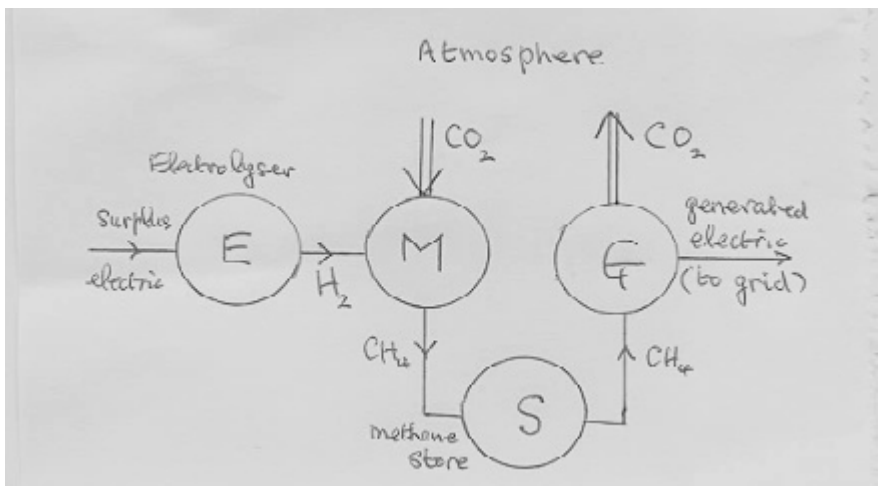 Atmosphere
CO₂
CO₂
Electrolyser
Surplus
electric
E
H₂
M
G
generated
electric
(to grid)
CH₄
CH₄
S
methane
store